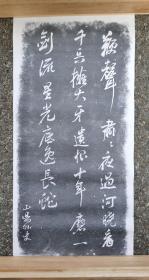 鞭聲肅々夜過河曉看
千兵擁大牙遺恨十年磨一
劍流星光底逸長蛇
山陽外史